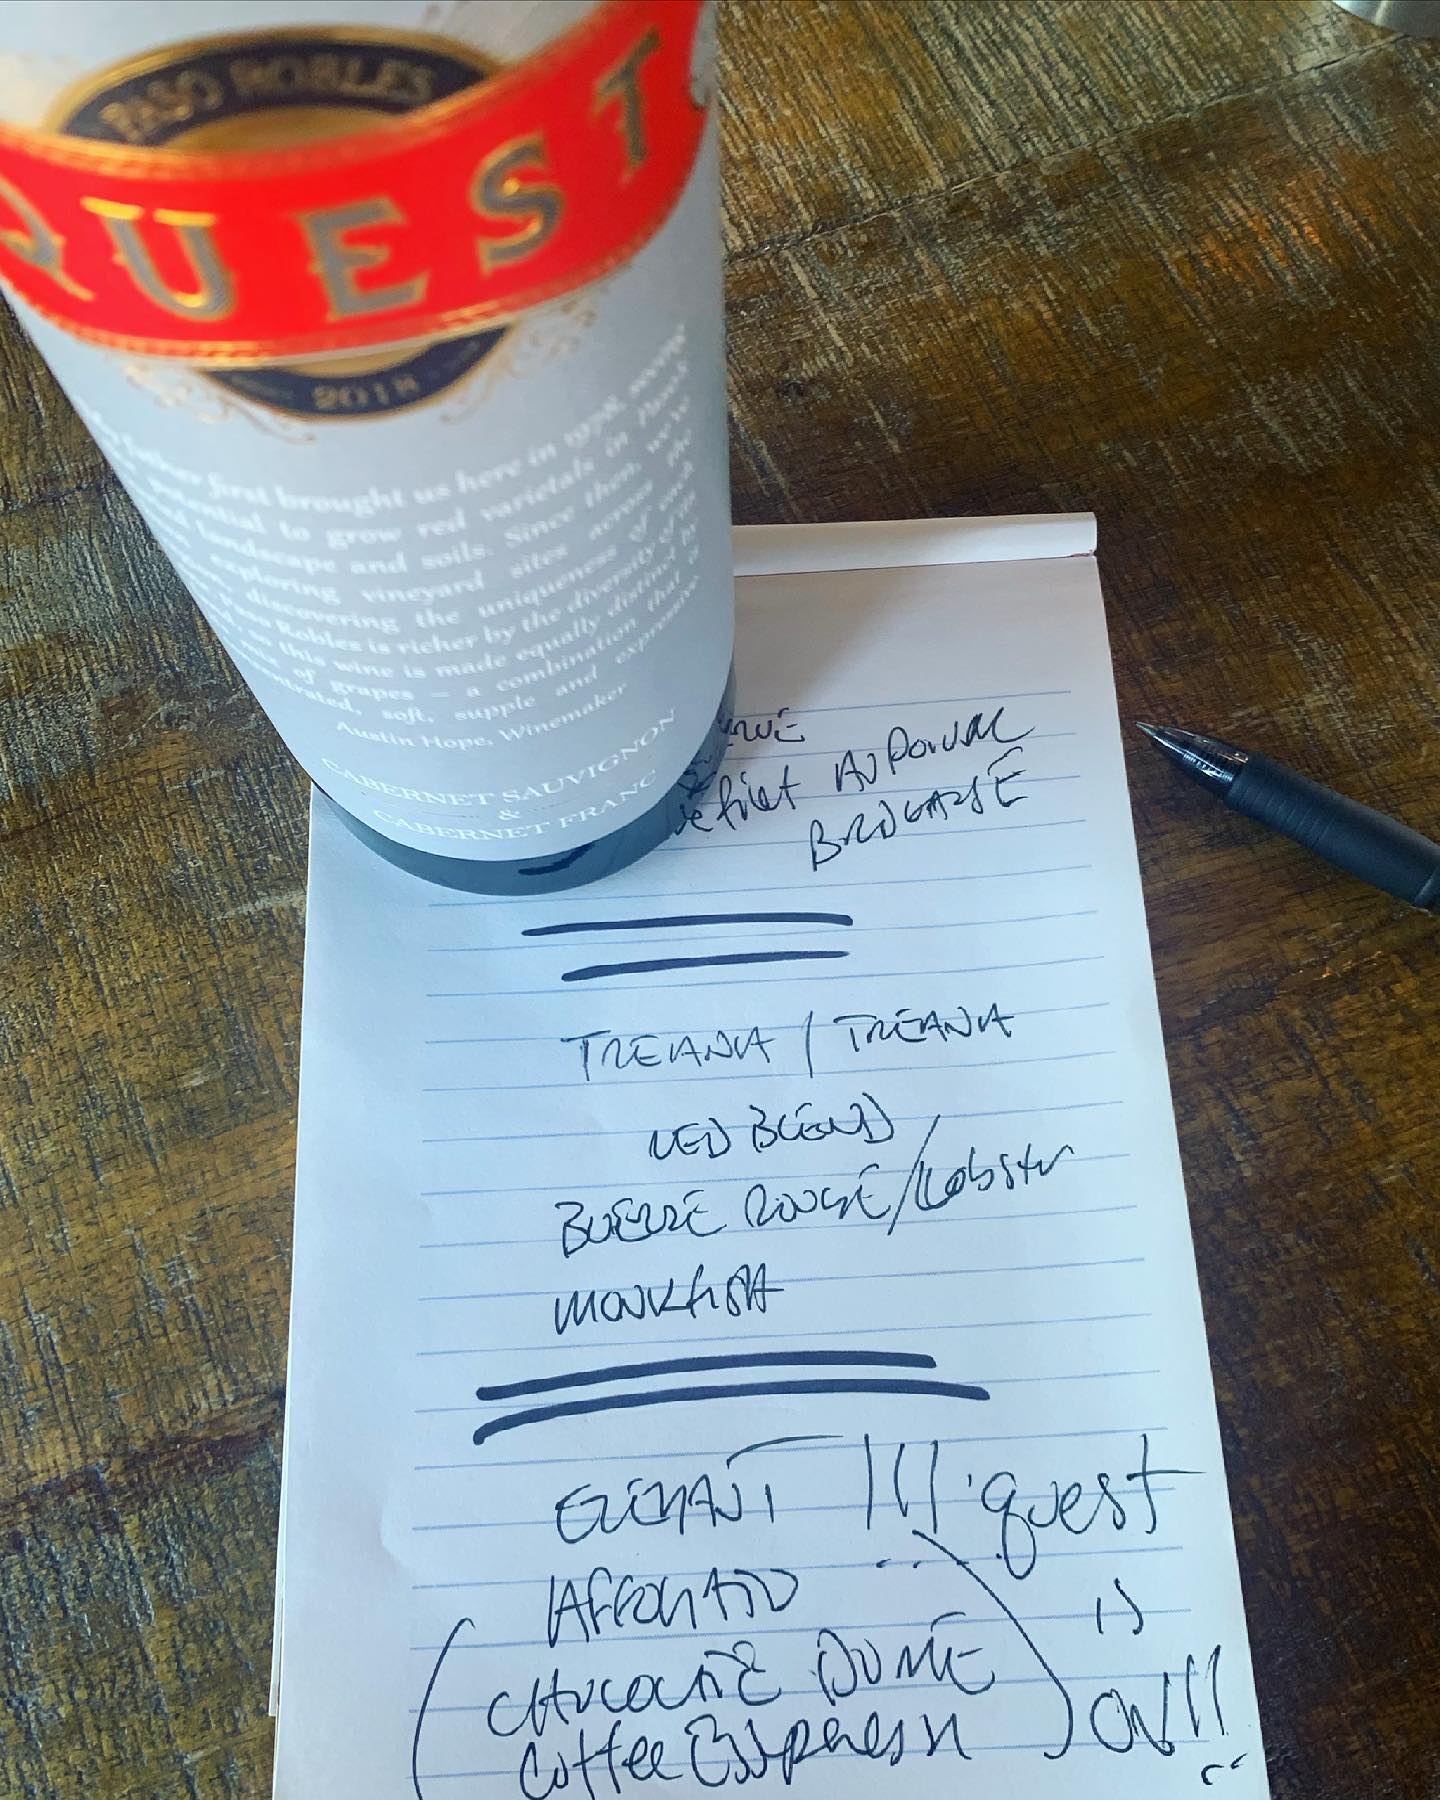 PASO ROBLES
QUEST
2018
father first brought us here in 1978, seeing
to grow red varietals in Paso's
landscape and soils. Since then, we've
exploring vineyard sites across the
discovering the uniqueness of each
Robles is richer by the diversity of
so this wine is made equally distinct by
of grapes – a combination that is
soft, supple and expressive
Austin Hope, Winemaker
CABERNET SAUVIGNON
&
CABERNET FRANC
filet AU POIVRE
TREANA / TREANA
RED BLEND
BUERRE ROUGE/Lobster
MONKFISH
!!! quest
AFFOGATO
is
CHOCOLATE DOME
ON!!
Coffee